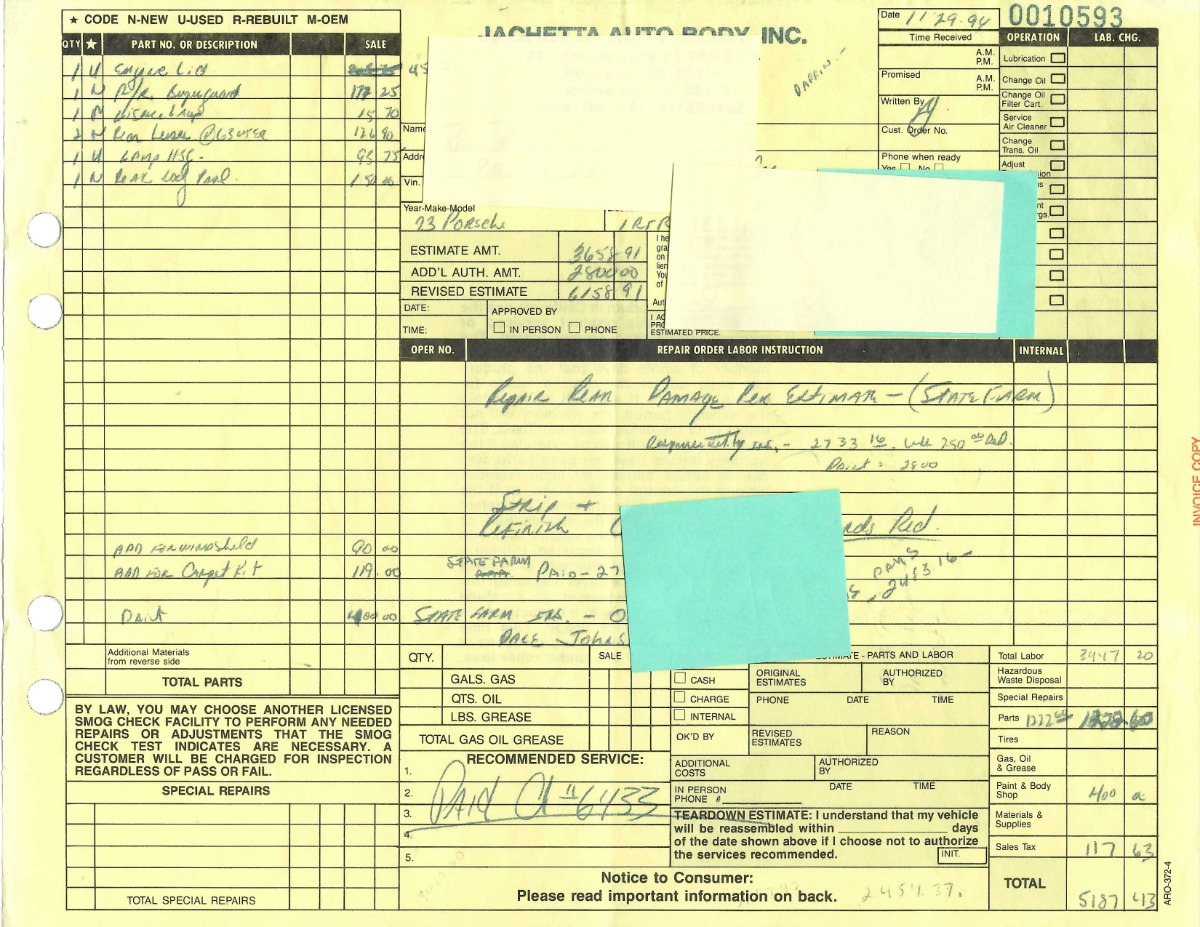 ★ CODE N-NEW U-USED R-REBUILT M-OEM
QTY ★ PART NO. OR DESCRIPTION SALE
1 U Engine Lid
1 N R/R Bumperguard 177 25
1 15 70
2 N Rear Lenses @ 63 126 90
1 U Lamp HSG. 93 75
1 N Rear body Panel
ADD FOR windshield 90 00
ADD FOR Carpet Kit 119.00
Paint 400 00
Additional Materials
from reverse side
TOTAL PARTS
BY LAW, YOU MAY CHOOSE ANOTHER LICENSED
SMOG CHECK FACILITY TO PERFORM ANY NEEDED
REPAIRS OR ADJUSTMENTS THAT THE SMOG
CHECK TEST INDICATES ARE NECESSARY. A
CUSTOMER WILL BE CHARGED FOR INSPECTION
REGARDLESS OF PASS OR FAIL.
SPECIAL REPAIRS
TOTAL SPECIAL REPAIRS
JACHETTA AUTO BODY, INC.
DARRIN
Name
Addre
Vin.
Year-Make-Model
73 Porsche
ESTIMATE AMT. 3658 91
ADD'L AUTH. AMT. 2800 00
REVISED ESTIMATE 6158 91
DATE:
TIME:
APPROVED BY
IN PERSON PHONE
I he
gra
on
lien
You
of
Aut
I AC
PRO
ESTIMATED PRICE.
Date 11-29-94
0010593
Time Received
A.M.
P.M.
Promised
A.M.
P.M.
Written By
Cust. Order No.
Phone when ready
Yes No
OPERATION LAB. CHG.
Lubrication
Change Oil
Change Oil
Filter Cart.
Service
Air Cleaner
Change
Trans. Oil
Adjust
OPER NO. REPAIR ORDER LABOR INSTRUCTION INTERNAL
Repair Rear Damage Per Estimate - (State Farm)
INS. - 2733 16 250 00 Ded.
Paint = 2800
Strip +
Refinish
Red.
STATE FARM
Paid - 27
2483.16 -
STATE FARM INS. - O
DALE Johns
QTY. SALE
GALS. GAS
QTS. OIL
LBS. GREASE
TOTAL GAS OIL GREASE
RECOMMENDED SERVICE:
1.
2.
3.
4.
5.
PAID CK # 6433
CASH
CHARGE
INTERNAL
OK'D BY
ESTIMATE - PARTS AND LABOR
ORIGINAL
ESTIMATES
AUTHORIZED
BY
PHONE DATE TIME
REVISED
ESTIMATES
REASON
ADDITIONAL
COSTS
AUTHORIZED
BY
IN PERSON
PHONE #
DATE TIME
TEARDOWN ESTIMATE: I understand that my vehicle
will be reassembled within ____________ days
of the date shown above if I choose not to authorize
the services recommended.
INIT.
Notice to Consumer:
Please read important information on back.
2454.37.
Total Labor 3447 20
Hazardous
Waste Disposal
Special Repairs
Parts 1222 60
Tires
Gas, Oil
& Grease
Paint & Body
Shop 400
Materials &
Supplies
Sales Tax 117 63
TOTAL 5187 43
INVOICE COPY
ARO-372-4